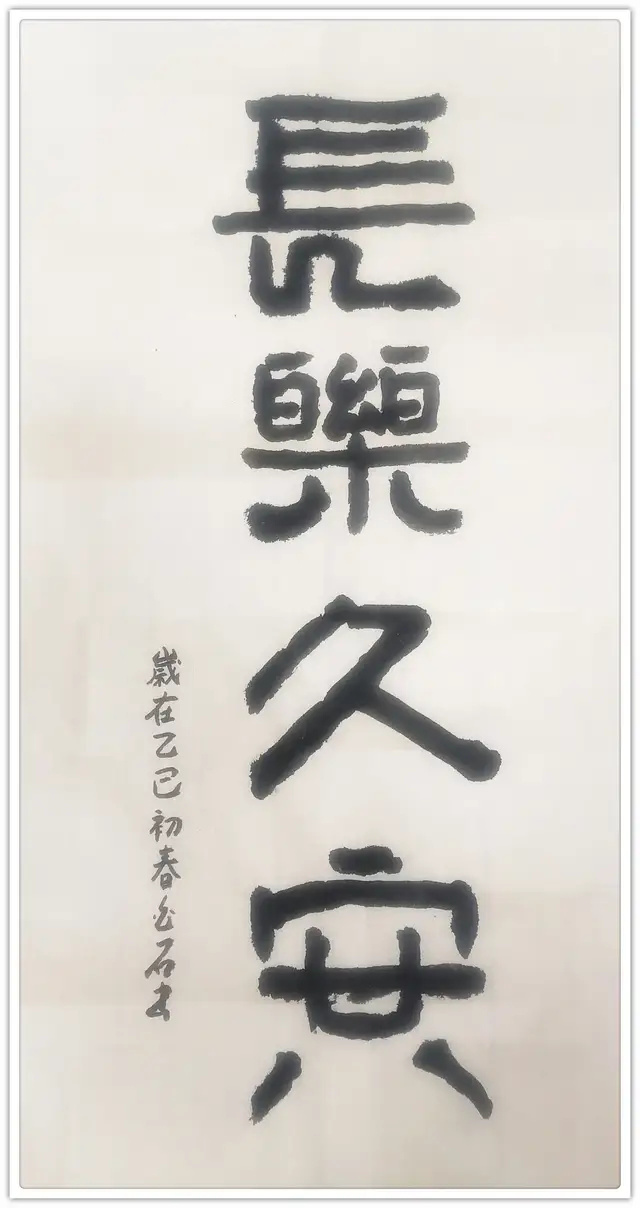 長樂久安
歲在乙巳初春石書